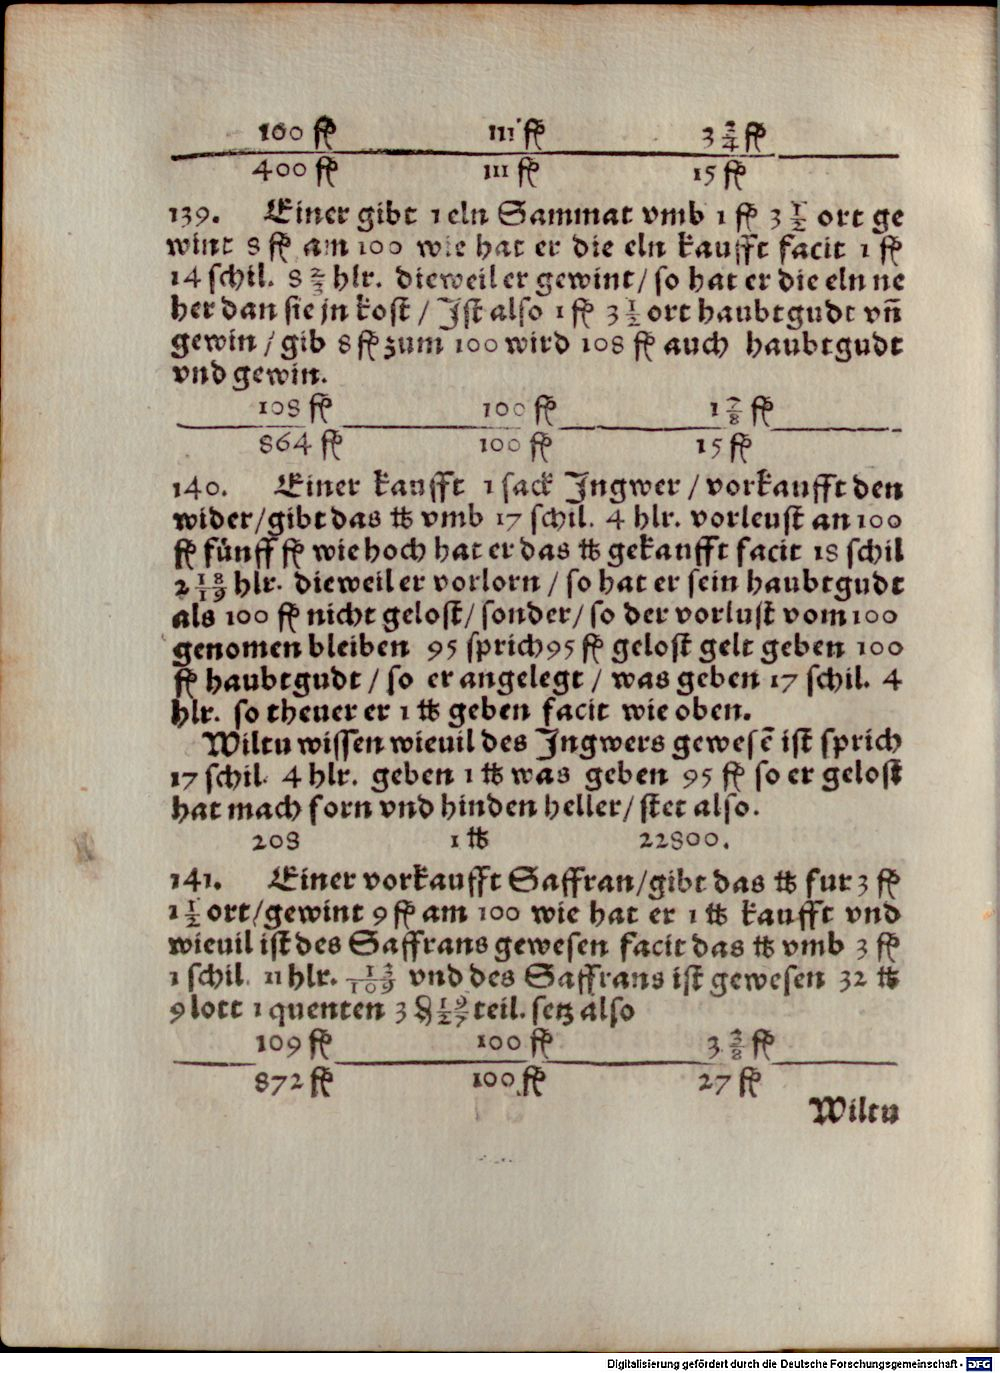 100 fl 111 fl 3 3/4 fl
400 fl 111 fl 15 fl
139. Einer gibt 1 eln Sammat vmb 1 fl 3 1/2 ort ge
wint 8 fl am 100 wie hat er die eln kaufft facit 1 fl
14 schil. 8 2/3 hlr. dieweil er gewint/ so hat er die eln ne
her dan sie jn kost/ Jst also 1 fl 3 1/2 ort haubtgudt vn̄
gewin/ gib 8 fl zum 100 wird 108 fl auch haubtgudt
vnd gewin.
108 fl 100 fl 1 7/8 fl
864 fl 100 fl 15 fl
140. Einer kaufft 1 sack Jngwer/ vorkaufft den
wider/gibt das ℔ vmb 17 schil. 4 hlr. vorleust an 100
fl fünff fl wie hoch hat er das ℔ gekaufft facit 18 schil
2 18/19 hlr. dieweil er vorlorn/ so hat er sein haubtgudt
als 100 fl nicht gelost/ sonder/ so der vorlust vom 100
genomen bleiben 95 sprich 95 fl gelost gelt geben 100
fl haubtgudt/ so er angelegt/ was geben 17 schil. 4
hlr. so theuer er 1 ℔ geben facit wie oben.
Wiltu wissen wieuil des Jngwers gewesē ist sprich
17 schil. 4 hlr. geben 1 ℔ was geben 95 fl so er gelost
hat mach forn vnd hinden heller/ stet also.
208 1 ℔ 22800.
141. Einer vorkaufft Saffran/gibt das ℔ fur 3 fl
1 1/2 ort/gewint 9 fl am 100 wie hat er 1 ℔ kaufft vnd
wieuil ist des Saffrans gewesen facit das ℔ vmb 3 fl
1 schil. 11 hlr. 13/109 vnd des Saffrans ist gewesen 32 ℔
9 lott 1 quenten 3 ₰ 19/27 teil. setz also
109 fl 100 fl 3 3/8 fl
872 fl 100 fl 27 fl
Wiltu
Digitalisierung gefördert durch die Deutsche Forschungsgemeinschaft - DFG